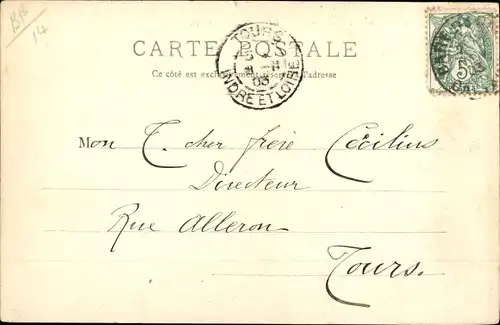 BB
14
CARTE POSTALE
Ce côté est exclusivement réservé à l'adresse
TOURS
INDRE ET LOIRE
5
Mon T. cher frère Cécilius
Directeur
Rue Alleron
Tours.